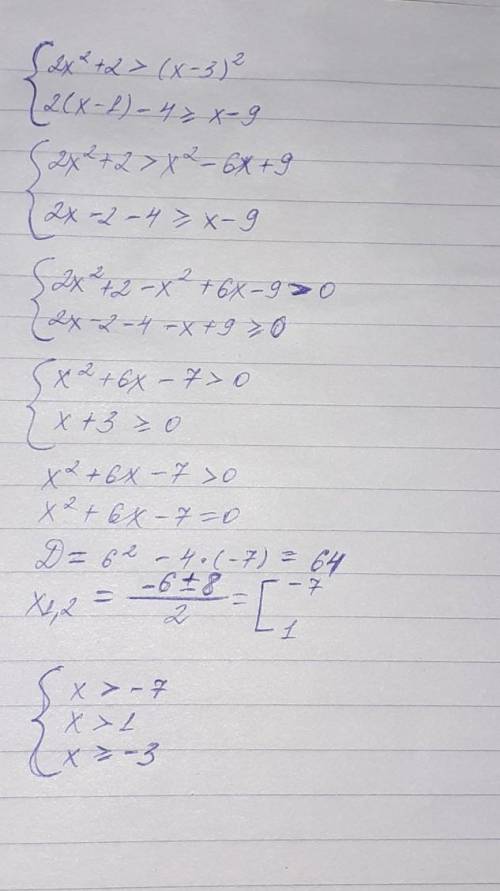 { 2x² + 2 > (x-3)²
2(x-1) - 4 ≥ x-9
{ 2x² + 2 > x² - 6x + 9
2x - 2 - 4 ≥ x - 9
{ 2x² + 2 - x² + 6x - 9 > 0
2x - 2 - 4 - x + 9 ≥ 0
{ x² + 6x - 7 > 0
x + 3 ≥ 0
x² + 6x - 7 > 0
x² + 6x - 7 = 0
D = 6² - 4·(-7) = 64
x₁,₂ = (-6 ± 8)/2 = [ -7
1
{ x > -7
x > 1
x ≥ -3